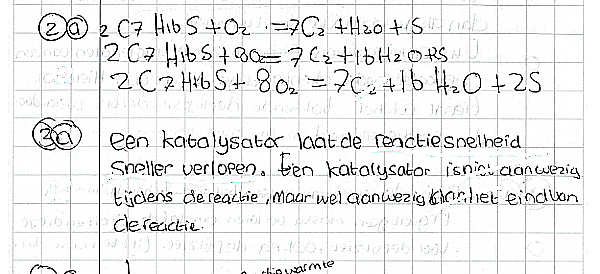 2a 2 C7 H16 S + O2 = 7C2 + H2O + S
2 C7 H16 S + 8O2 = 7C2 + 16 H2O + 2S
2 C7 H16 S + 8 O2 = 7C2 + 16 H2O + 2S
3a een katalysator laat de reactiesnelheid
sneller verlopen. Een katalysator is niet aanwezig
tijdens de reactie, maar wel aanwezig aan het eind van
de reactie.